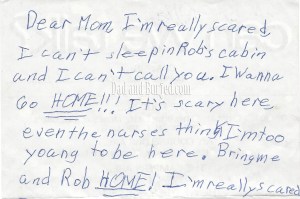 Dear Mom, I'm really scared,
I can't sleep in Rob's cabin
and I can't call you. I Wanna
Go HOME!!! It's scary here,
Dad and Buried.com
even the nurses think I'm too
young to be here. Bring me
and Rob HOME! I'm really scared